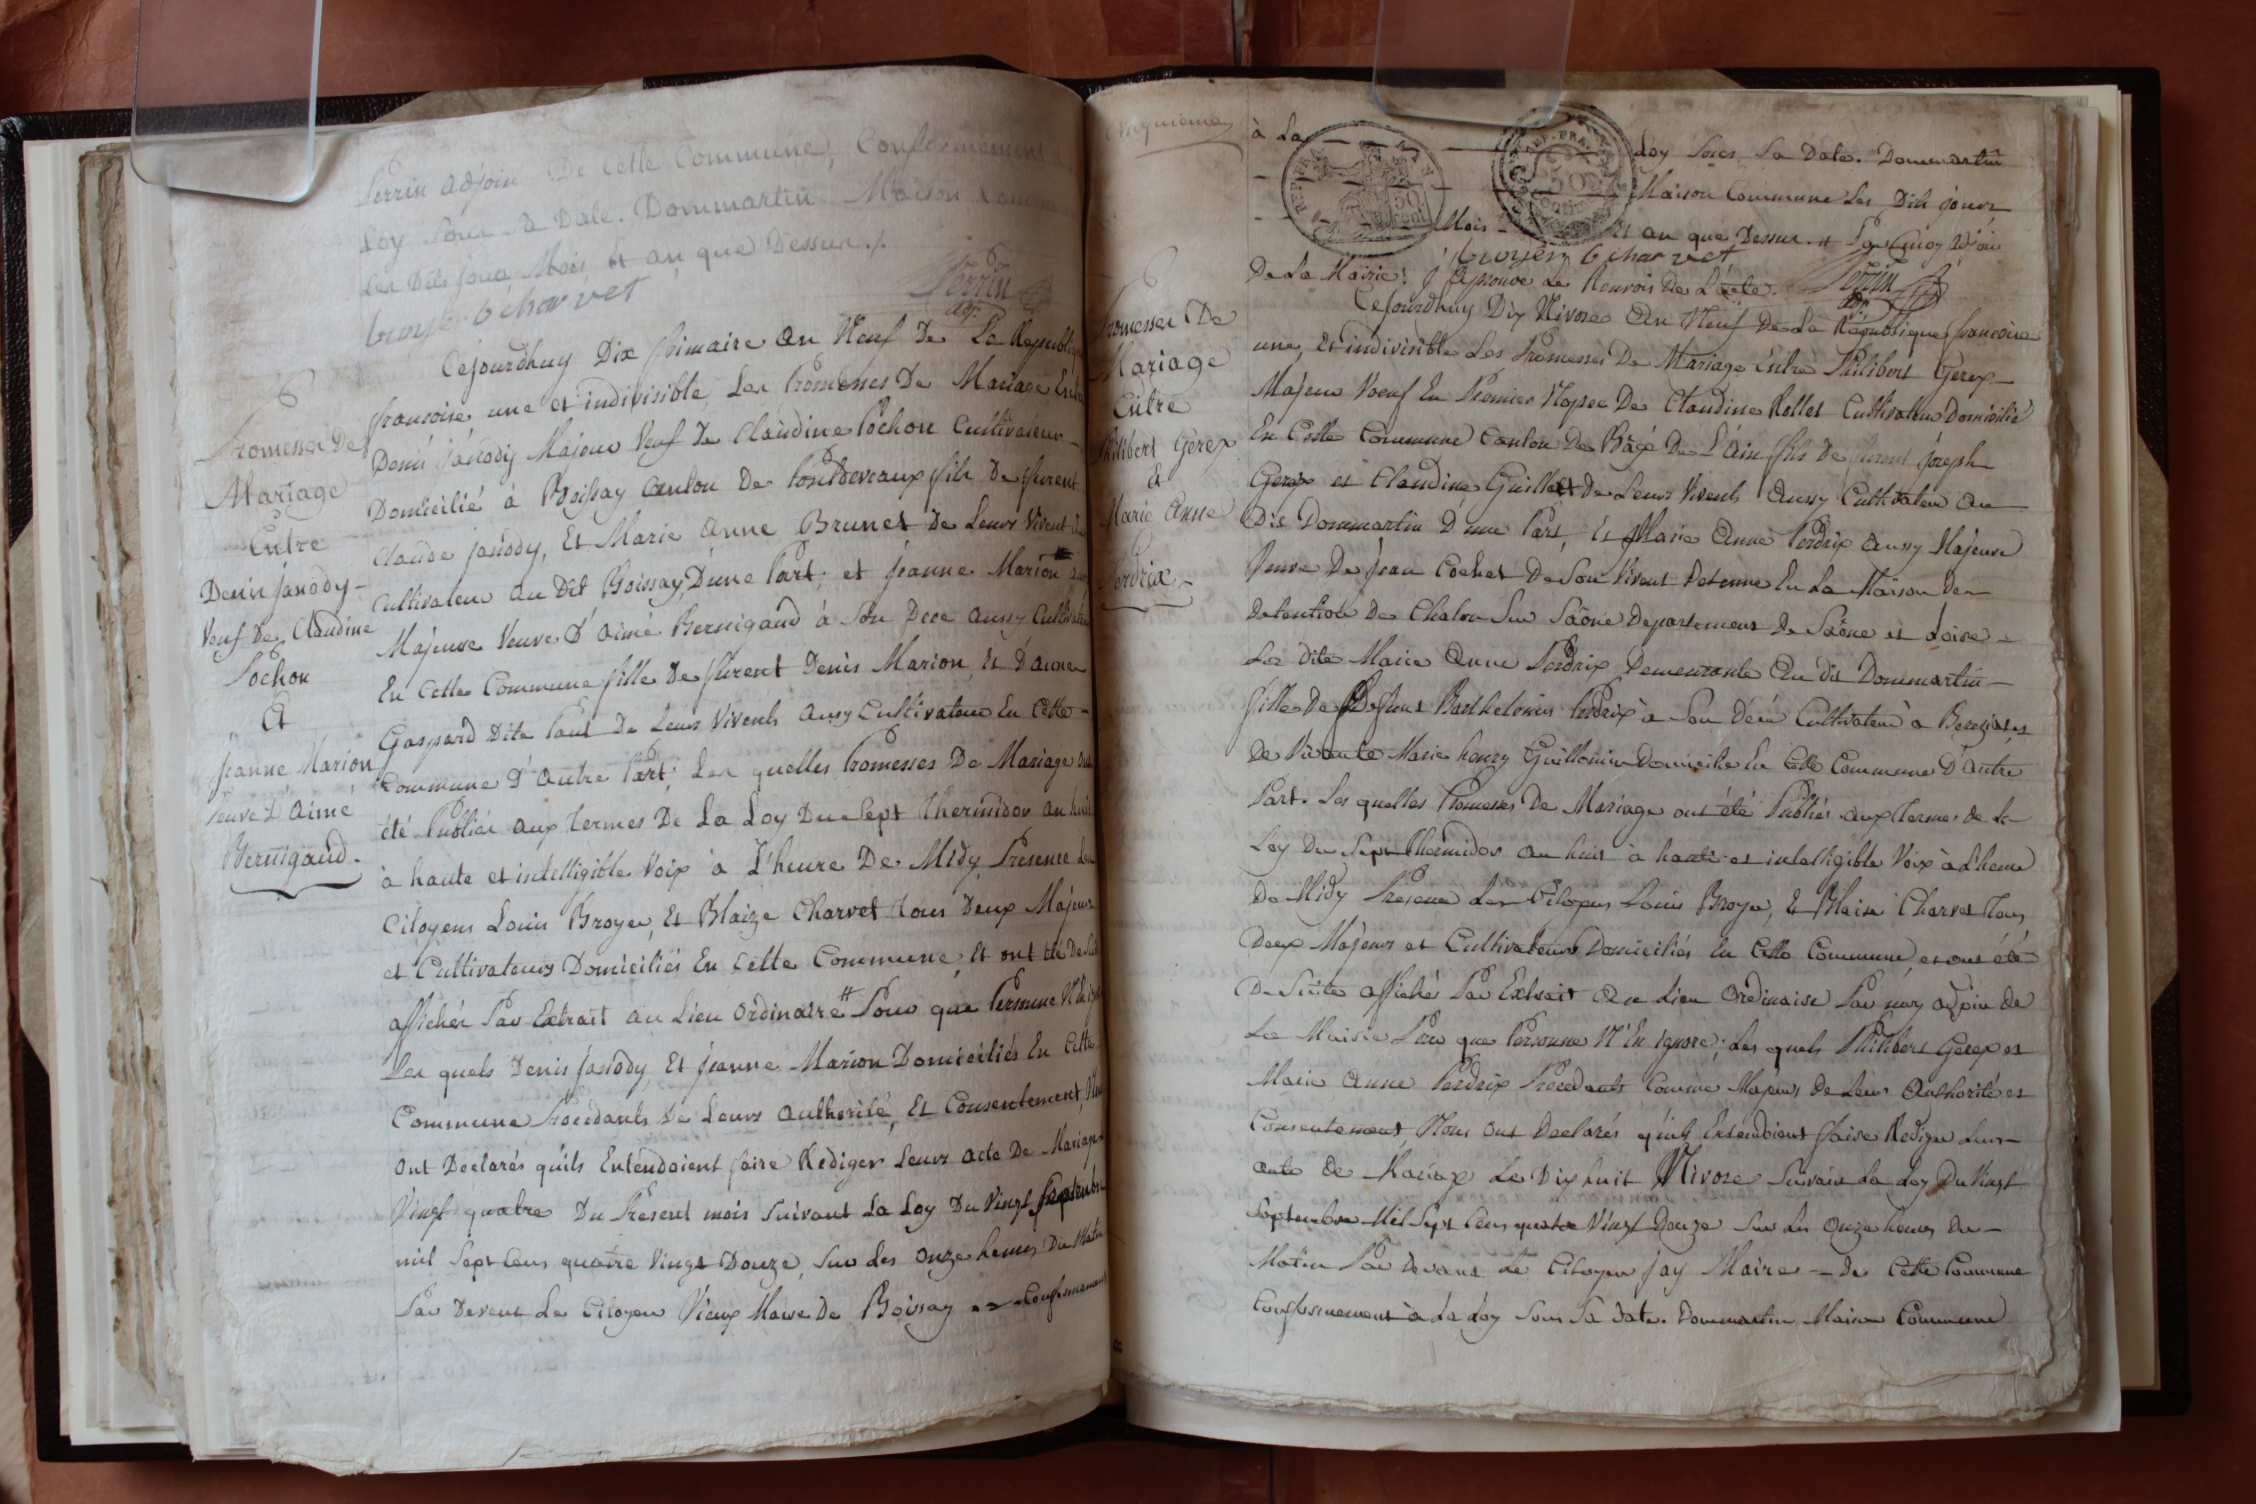 Perrin adjoin De Cette Commune, Conformement
Loy Sous Sa Date. Dommartin Maison Commune
Les Dits jour, Mois et an que Dessus./.
broyer b charvet Perrin
adj.
Promesses De
Mariage
Entre
Denis janody
Veuf De Claudine
Pochon
Et
jeanne Marion
Veuve D'aimé
Bernigaud.
Cejourdhuy Dix frimaire an Neuf De La Republique
francoise une et indivisible, Les Promesses De Mariage Entre
Denis janody Majeur Veuf De Claudine Pochon Cultivateur
Domicilié à Boissay Canton De Pontdevaux fils De furent
Claude janody, Et Marie anne Brunet De Leurs Vivents
Cultivateur au Dit Boissay, D'une Part; et jeanne Marion
Majeure Veuve D'aimé Bernigaud à Son Dece aussy Cultivateur
En Cette Commune fille De furent Denis Marion, Et D'anne
Gaspard Dite Paul De Leurs Vivents aussy Cultivateur En Cette
Commune D'autre Part; Les quelles Promesses De Mariage ont
été Publiée aux termes De La Loy Du Sept thermidor an huit
à haute et intelligible Voix à L'heure De Midy, Presence Les
Citoyens Louis Broyer, Et Blaize Charvet tous Deux Majeurs
et Cultivateurs Domiciliés En Cette Commune, Et ont été De Suite
affichés Par Extrait au Lieu Ordinaire Pour que Personne N'En ignore
Les quels Denis janody, Et jeanne Marion Domiciliés En Cette
Commune Procedants De Leurs authorité, Et Consentement, Nous
Ont Declarés qu'ils Entendoient faire Rediger Leurs acte De Mariage
Vingt quatre Du Present mois Suivant La Loy Du Vingt Septembre
mil Sept Cens quatre Vingt Douze, Sur Les Onze heures Du Matin
Par Devent Le Citoyen Vieux Maire De Boissay Conformement
Cinquieme
à La Loy Sous Sa Date. Dommartin
Maison Commune Les Dits jours
Mois Et an que Dessus.
broyer b charvet
De La Mairie; j'aprouve Le Renvois De L'autre. Perrin
adj.
Promesses De
Mariage
Entre
Philibert Gerex
et
Marie Anne
Perdrix
Cejourdhuy Dix Nivose an Neuf De La Republique francoise
une, Et indivisible Les Promesses De Mariage Entre Philibert Gerex
Majeur Voeuf En Premier Nopce De Claudine Rollet Cultivateur Domicilié
En Cette Commune Canton De Bagé De L'ain fils De furent joseph
Gerex et Claudine Guillet De Leurs Vivents aussy Cultivateur au
Dit Dommartin D'une Part, Et Marie Anne Perdrix aussy Majeure
Veuve De jean Cochet De Son Vivent Detenue En La Maison De
Detention De Chalon Sur Saône Departement De Saône et Loire
La Dite Marie Anne Perdrix Demeurante au dit Dommartin
fille De Defunt Barthelemis Perdrix à Son Déce Cultivateur à Bereziat, et
De Vivante Marie henry Guillomin Domicilie En Cette Commune D'autre
Part. Les quelles Promesses De Mariage ont été Publiés aux termes de La
Loy Du Sept Thermidor an huit à haute et intelligible Voix à L'heure
De Midy Presence Les Citoyens Louis Broyer, Et Blaise Charvet tous
Deux Majeurs et Cultivateurs Domiciliés En Cette Commune, et ont été
De Suite affiché Par Extrait au Lieu Ordinaire Par moy adjoin de
La Mairie Pour que Personne N'En ignore; Les quels Philibert Gerex et
Marie Anne Perdrix Procedants Comme Majeurs De Leur Authorité et
Consentement, Nous ont Declarés qu'ils Entendoient faire Rediger Leur
acte de Mariage Le Dix huit Nivose Suivant La Loy Du Vingt
Septembre Mil Sept Cens quatre Vingt Douze Sur Les Onze heures Du
Matin Par Devant Le Citoyen jay Maire De Cette Commune
Conformement à La Loy Sous Sa Date. Dommartin Maison Commune